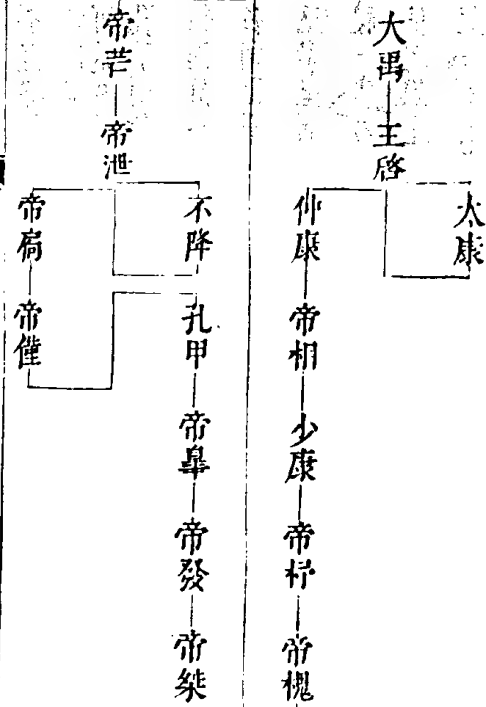 大禹
王啓
太康
仲康
帝相
少康
帝杼
帝槐
帝芒
帝泄
不降
孔甲
帝臯
帝發
帝桀
帝扃
帝僅